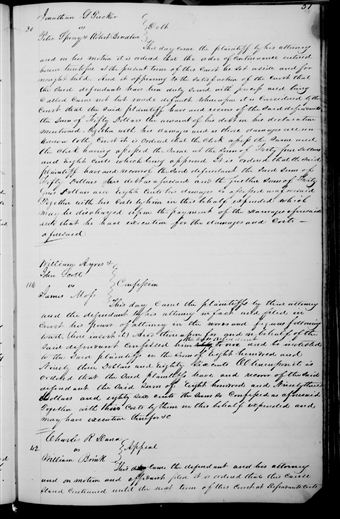 51
Jonathan D
31 Debt
Peter Sprong & Robert
This day came the plaintiff by his attorney
and on motion it is ordered that the order of continuance entered
herein heretofore at the present term of this Court be set aside and for
nought held. And it appearing to the satisfaction of the Court that
the said defendants have been duly served with process and being
Called Came not but made default whereupon it is Considered by the
Court that the said plaintiff have and recover of the said defendants
the Sum of Fifty Dollars the amount of his debt in his declaration
mentioned together with his damages and as these damages rest in
the Court it is ordered that the clerk assess the same and
the clerk having assessed the same at the sum of Forty four Dollars
and eighty cents which being approved It is ordered that the said
plaintiff have and recover of the said defendants the said Sum of
Fifty Dollars his debt as aforesaid and the further Sum of Forty
four Dollars and eighty Cents his damages so assessed as aforesaid
Together with his Costs by him in this behalf expended which
may be discharged upon the payment of the damages aforesaid
and that he have execution for the damages and Costs
aforesaid.
William Ayres &
John
116 vs Confession
James Moss
This day Came the plaintiffs by their attorney
and the defendant by his attorney in fact who filed in
Court his power of attorney in the words and figures following
to wit (here insert it) Also thereupon for and in behalf of the
Said defendant confessed him to owe and be indebted
to the said plaintiffs in the sum of Eight hundred and
Ninety three Dollars and eighty six cents Whereupon it is
ordered that the said plaintiffs have and recover of the said
defendant the said sum of Eight hundred and Ninety three
Dollars and eighty six cents the sum so Confessed as aforesaid
Together with their Costs by them in this behalf expended and
may have execution therefor &c
Charles R
42 vs Appeal
William Brink
This day Came the defendant and his attorney
and on motion and affidavit filed it is ordered that this Cause
Stand Continued until the next term of this Court at defendants Costs